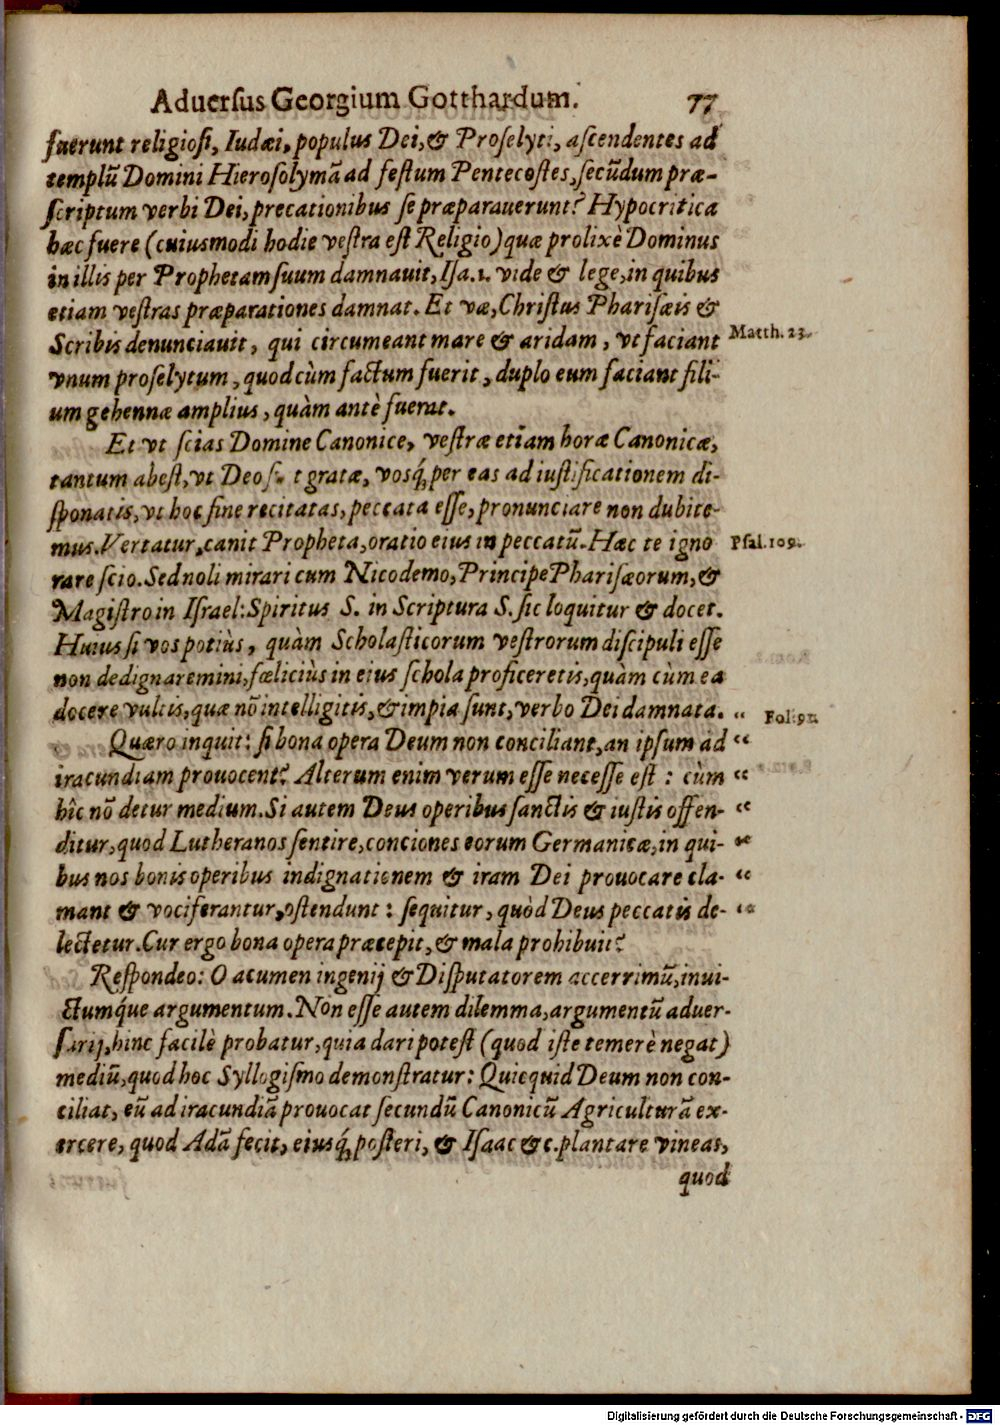 Aduersus Georgium Gotthardum. 77
fuerunt religiosi, Iudæi, populus Dei, & Proselyti, ascendentes ad
templũ Domini Hierosolymã ad festum Pentecostes, secũdum præ-
scriptum verbi Dei, precationibus se præparauerunt? Hypocritica
hæc fuere (cuiusmodi hodie vestra est Religio) quæ prolixè Dominus
in illis per Prophetam suum damnauit, Isa.1. vide & lege, in quibus
etiam vestras præparationes damnat. Et væ, Christus Pharisæis &
Scribis denunciauit, qui circumeant mare & aridam, vt faciant
Matth.23.
vnum proselytum, quod cùm factum fuerit, duplo eum faciant fili-
um gehennæ amplius, quàm antè fuerat.
Et vt scias Domine Canonice, vestræ etiam horæ Canonicæ,
tantum abest, vt Deo t gratæ, vosq́; per eas ad iustificationem di-
sponatis, vt hoc fine recitatas, peccata esse, pronunciare non dubite-
mus. Vertatur, canit Propheta, oratio eius in peccatũ. Hæc te igno
Psal.109.
rare scio. Sed noli mirari cum Nicodemo, Principe Pharisæorum, &
Magistro in Israel: Spiritus S. in Scriptura S. sic loquitur & docet.
Huius si vos potiùs, quàm Scholasticorum vestrorum discipuli esse
non dedignaremini, fæliciùs in eius schola proficeretis, quàm cùm ea
docere vultis, quæ nõ intelligitis, & impia sunt, verbo Dei damnata. “
Fol.91.
Quæro inquit: si bona opera Deum non conciliant, an ipsum ad “
iracundiam prouocent? Alterum enim verum esse necesse est: cùm “
hîc nõ detur medium. Si autem Deus operibus sanctis & iustis offen- “
ditur, quod Lutheranos sentire, conciones eorum Germanicæ, in qui- “
bus nos bonis operibus indignationem & iram Dei prouocare cla- “
mant & vociferantur, ostendunt: sequitur, quòd Deus peccatis de- “
lectetur. Cur ergo bona opera præcepit, & mala prohibuit?
Respondeo: O acumen ingenij & Disputatorem accerrimũ, inui-
ctumq́ue argumentum. Non esse autem dilemma, argumentũ aduer-
sarij, hinc facilè probatur, quia dari potest (quod iste temerè negat)
mediũ, quod hoc Syllogismo demonstratur: Quicquid Deum non con-
ciliat, eũ ad iracundiã prouocat secundũ Canonicũ Agriculturã ex-
ercere, quod Adã fecit, eiusq́; posteri, & Isaac &c. plantare vineas,
quod
Digitalisierung gefördert durch die Deutsche Forschungsgemeinschaft - DFG